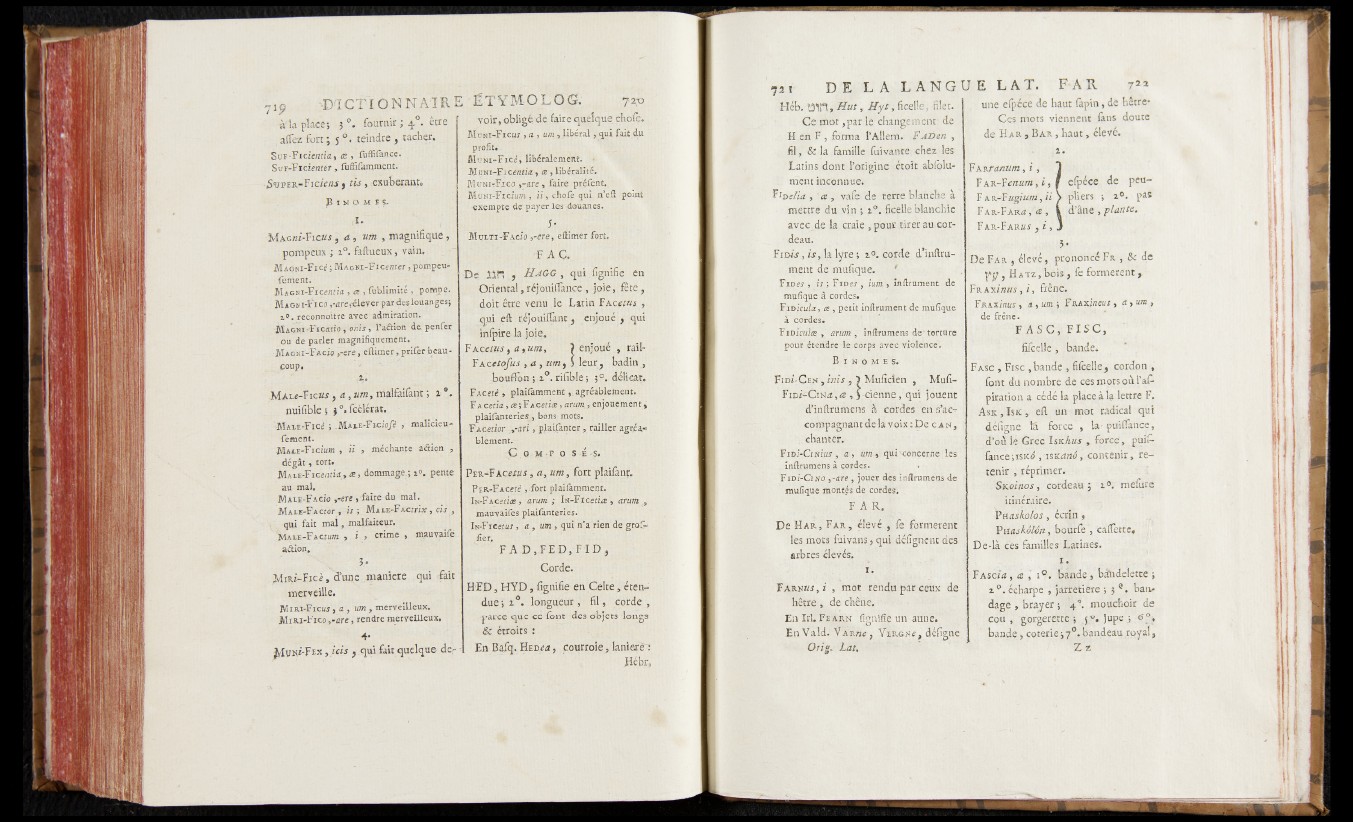 719 DICTIONNAIRE ÉTYMOLOG. 720
à la place; 3 °. fournir ; 4°. être
aſſez fort ; 5 °. teindre , tacher.
Suf-Ficientia, æ , ſuffiſance.
Suf-Ficienter , ſuffiſamment.
Super-Ficiens , tis , exuberant.
Binomes.
1.
Magni-Ficus , a , um , magnifique ,
pompeux ; 2°. faſtueux , vain.
Magni-Ficé ; Magni-Ficenter , pompeu-
ſement.
Magni-Ficentia , æ , ſublimité , pompe.
Magni-Fico ,-are, élever par des louanges;
2°. reconnoître avec admiration.
Magni-Ficatio , onis , l'action de penſer
ou de parler magnifiquement.
Magni-Facio ,-ere , eſtimer , priſer beau-
coup.
2.
Male-Ficus , a , um, malfaiſant ; 2 °.
nuiſible ; 3 °. ſcélérat.
Male-Ficé ; Male-Ficiosè , malicieu-
ſement.
Male-Ficium , ii , méchante action ,
dégât , tort.
Male-Ficentia , æ , dommage ; 2°. pente
au mal.
Male-Facio ,-ere , faire du mal.
Male-Factor , is ; Male-Factrix , cis ,
qui fait mal , malfaiteur.
Male-Factum , i , crime , mauvaiſe
action.
3.
Miri-Ficè , d'une maniere qui fait
merveille.
Miri-Ficus , a , um , merveilleux.
Miri-Fico ,-are , rendre merveilleux.
4.
Muni-Fex , icis , qui fait quelque de-
voir, obligé de faire quelque choſe.
Muni-Ficus , a , um , libéral , qui fait du
profit.
Muni-Ficé, libéralement.
Muni-Ficentia , æ , libéralité.
Muni-Fico ,-are , faire préſent.
Muni-Ficium , ii , choſe qui n'eſt point
exempte de payer les douanes.
5.
Multi-Facio ,-ere, eſtimer fort.
FAC.
De חגג , HAGG , qui ſignifie en
Oriental , réjouiſſance , joie, fête ,
doit être venu le Latin Facetus ,
qui eſt réjouiſſant , enjoué , qui
inſpire la joie.
Facetus , a , um, } enjoué , rail-
Facetoſus , a , um, } leur , badin ,
bouffon ; 2°. riſible ; 3°. délicat.
Faceté , plaiſamment , agréablement.
Facetia , æ ; Facetiæ , arum , enjouement ,
plaiſanteries , bons mots.
Facetior ,-ari , plaiſanter , railler agréa-
blement.
Composés.
Per-Facetus , a, um , fort plaiſant.
Per-Faceté , fort plaiſamment.
In-Facetiæ , arum ; In-Ficetiæ , arum ,
mauvaiſes plaiſanteries.
In-Ficetus , a , um , qui n'a rien de groſ-
ſier.
FAD, FED, FID,
Corde.
HED, HYD, ſignifie en Celte , éten-
due ; 2°. longueur , fil , corde ,
parce que ce ſont des objets longs
& étroits :
En Baſq. Hedea , courroie, laniere :
Hébr,
721 DE LA LANGUE LAT. FAR 722
Héb. חוט, Hut , Hyt , ficelle, filet.
Ce mot , par le changement de
H en F , forma l'Allem. FaDen ,
fil , & la famille ſuivante chez les
Latins dont l'origine étoit abſolu-
ment inconnue.
Fidelia , æ , vaſe de terre blanche à
mettre du vin ; 2°. ficelle blanchie
avec de la craie , pour tirer au cor-
deau.
Fidis , is , la lyre ; 2°. corde d'inſtru-
ment de muſique.
Fides , is ; Fides , ium , inſtrument de
muſique à cordes.
Fidicula , æ , petit inſtrument de muſique
à cordes.
Fidiculæ , arum , inſtrumens de torture
pour étendre le corps avec violence.
Binomes.
Fidi-Cen , inis , } Muſicien , Muſi-
Fidi-Cina , æ , } cienne , qui jouent
d'inſtrumens à cordes en s'ac-
compagnant de la voix : De can,
chanter.
Fidi-Cinius , a , um , qui concerne les
inſtrumens à cordes.
Fidi-Cino ,-are , jouer des inſtrumens de
muſique montés de cordes.
FAR.
De Har , Far , élevé , ſe formerent
les mots ſuivans , qui déſignent des
arbres élevés.
1.
Farnus , i , mot rendu par ceux de
hêtre , de chêne.
En Irl. Fearn ſignifie un aune.
En Vald. Varne , Vergne , déſigne
Orig. Lat.
une eſpéce de haut ſapin , de hêtre.
Ces mots viennent ſans doute
de Har , Bar , haut , élevé.
2.
Farranum , i ,
Far-Fenum , i , eſpéce de peu-
Far-Fugium , ii pliers ; 2°. pas
Far-Fara , æ , d'âne , plante.
Far-Farus , i ,
3.
De Far , élevé , prononcé Fr , & de
עץ , Hatz , bois , ſe formerent ,
Fraxinus , i , frêne.
Fraxinus , a , um ; Fraxineus , a , um ,
de frêne.
FASC, FISC,
fiſcelle , bande.
Fasc , Fisc , bande , fiſcelle , cordon ,
ſont du nombre de ces mots où l'aſ-
piration a cédé la place à la lettre F.
Ask , Isk , eſt un mot radical qui
déſigne la force , la puiſſance ,
d'où le Grec Iskhus , force , puiſ-
ſance ; iskó , iskanó , contenir , re-
tenir , réprimer.
Skoinos , cordeau ; 2°. meſure
itinéraire.
Phaskolos , écrin ,
Phaskólón , bourſe , caſſette.
De-là ces familles Latines.
1.
Fascia , æ , 1°. bande , bandelette ;
2°. écharpe , jarretiere ; 3 °. ban-
dage , brayer ; 4°. mouchoir de
cou , gorgerette ; 5°. jupe ; 6°.
bande , coterie ; 7°. bandeau royal,
Z z